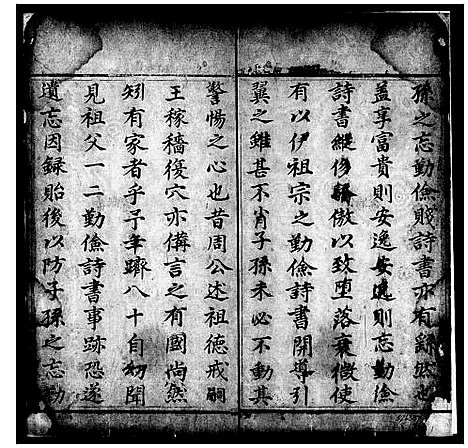 孫之忘勤儉賤詩書亦有
蓋享富貴則安逸安逸則忘勤儉
詩書縱侈驕傲以致堕落衰微使
有以伊祖宗之勤儉詩書開導引
翼之雖甚不肖子孫未必不動其
警惕之心也昔周公述祖德戒嗣
王稼穡復穴亦備言之有國尚然
矧有家者乎予年躋八十自幼聞
見祖父一二勤儉詩書事跡恐遂
遺忘因録貽後以防子孫之忘勤